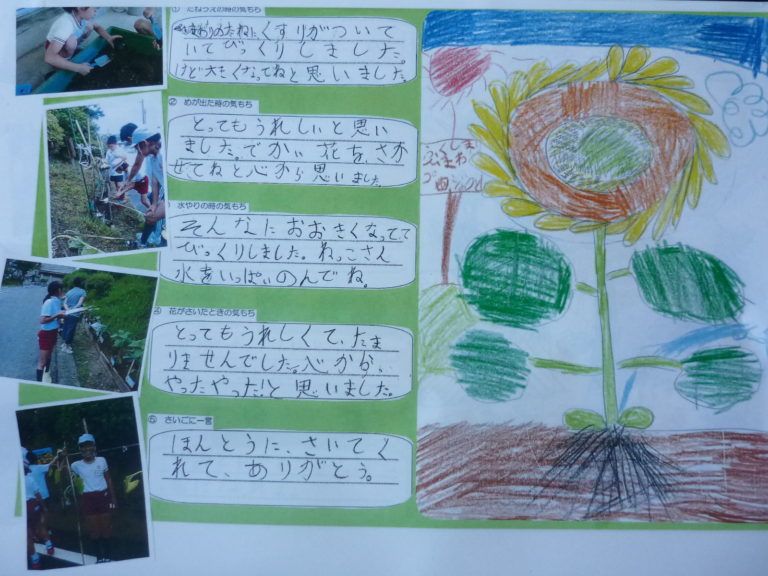 ① たねうえの時の気もち
くすりがついて
いてびっくりしました。
けど大もくなってねと思いました。
② めが出た時の気もち
とってもうれしいと思い
ました。でかい花を、さか
せてねと心から思いました。
水やりの時の気もち
そんなにおおきくなってて
びっくりしました。ねっこさん
水をいっぱいのんでね。
④ 花がさいたときの気もち
とってもうれしくて、たま
りませんでした。心から、
やったやった!と思いました。
⑤ さいごに一言
ほんとうに、さいてく
れて、ありがとう。
ふくしま
ひまわ